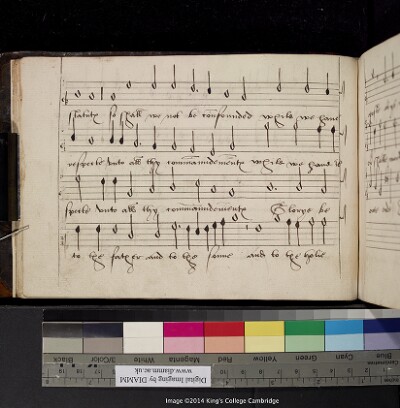 statutz so shall we not be confounded while we have
respecte unto all thy commaundementz while we have re
specte unto all thy commaundementz Glorye be
to the father and to the sonne and to the holie
Black 3/Color White Magenta Red Yellow Green Cyan Blue
Digital Imaging by DIAMM
www.diamm.ac.uk
Image ©2014 King's College Cambridge